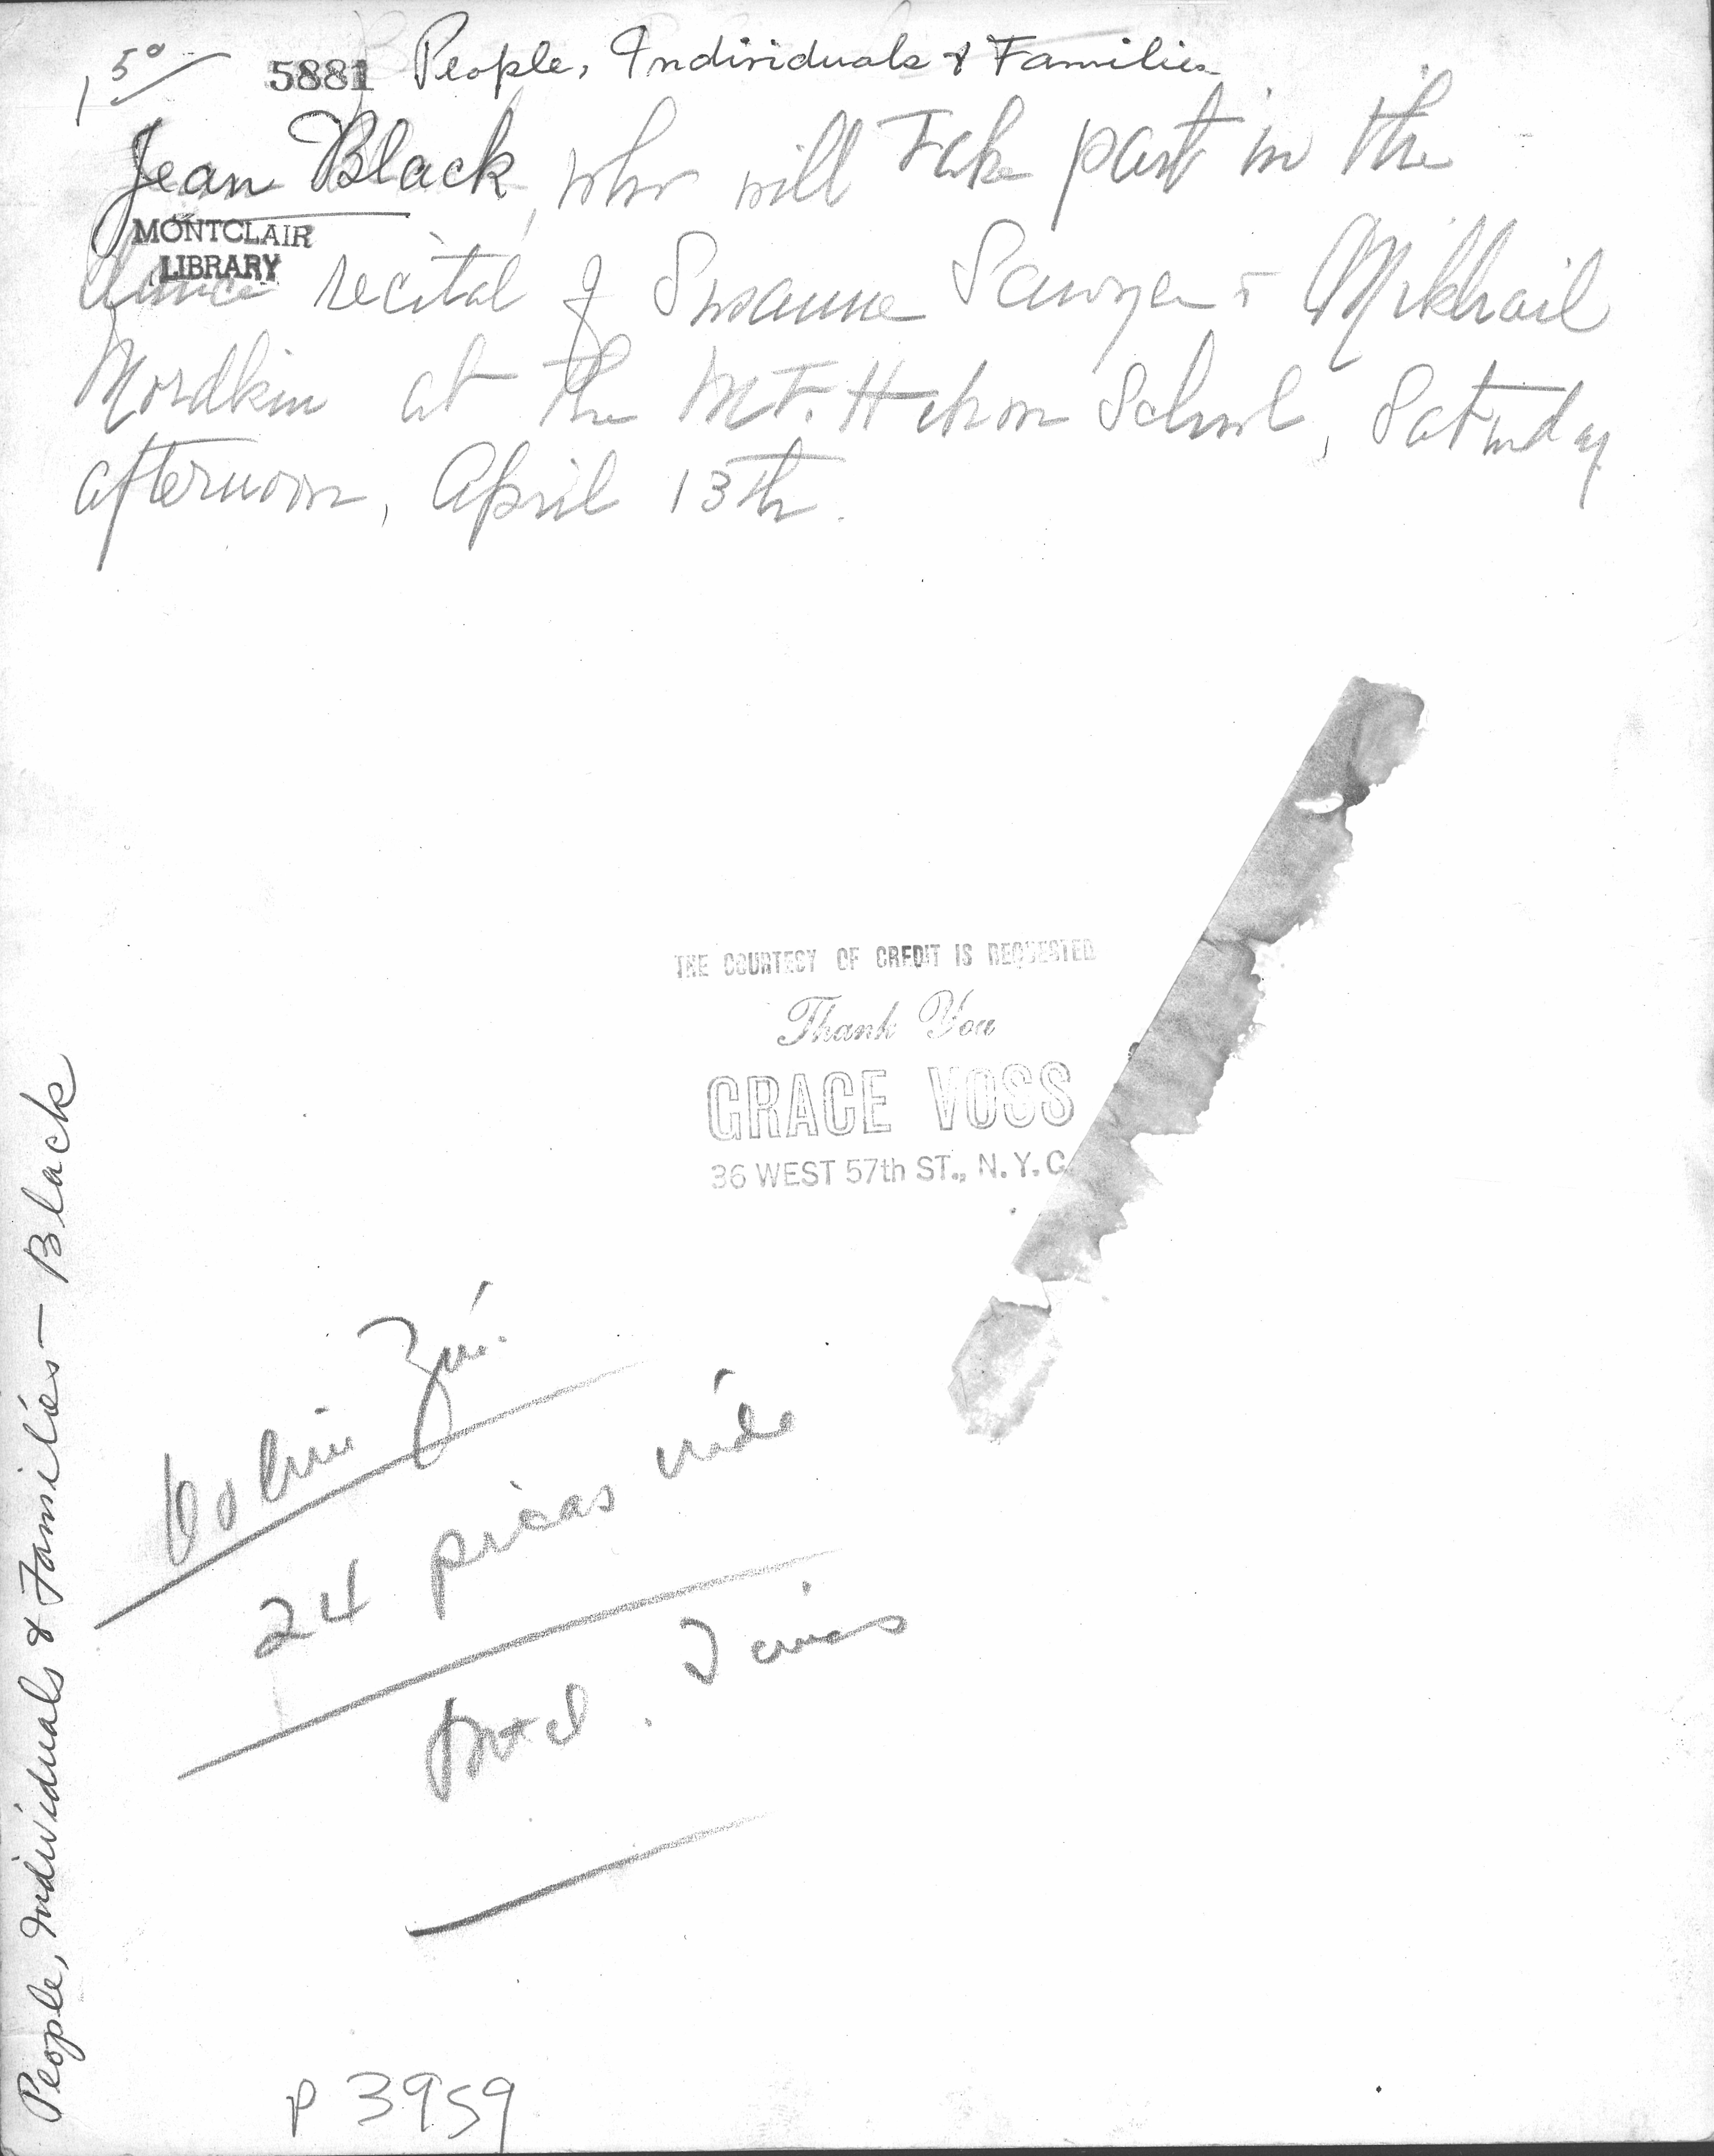 1 50
5881 People, Individuals & Families
Jean Black, who will take part in the
MONTCLAIR
LIBRARY
dance recital of Susanne Sawyer & Mikhail
Mordkin at the Mt. Hebron School, Saturday
afternoon, April 13th.
THE COURTESY OF CREDIT IS REQUESTED
Thank You
GRACE VOSS
36 WEST 57th ST., N.Y.C.
24 picas wide
Mtcl. Times
P 3959
People, Individuals & Families - Black